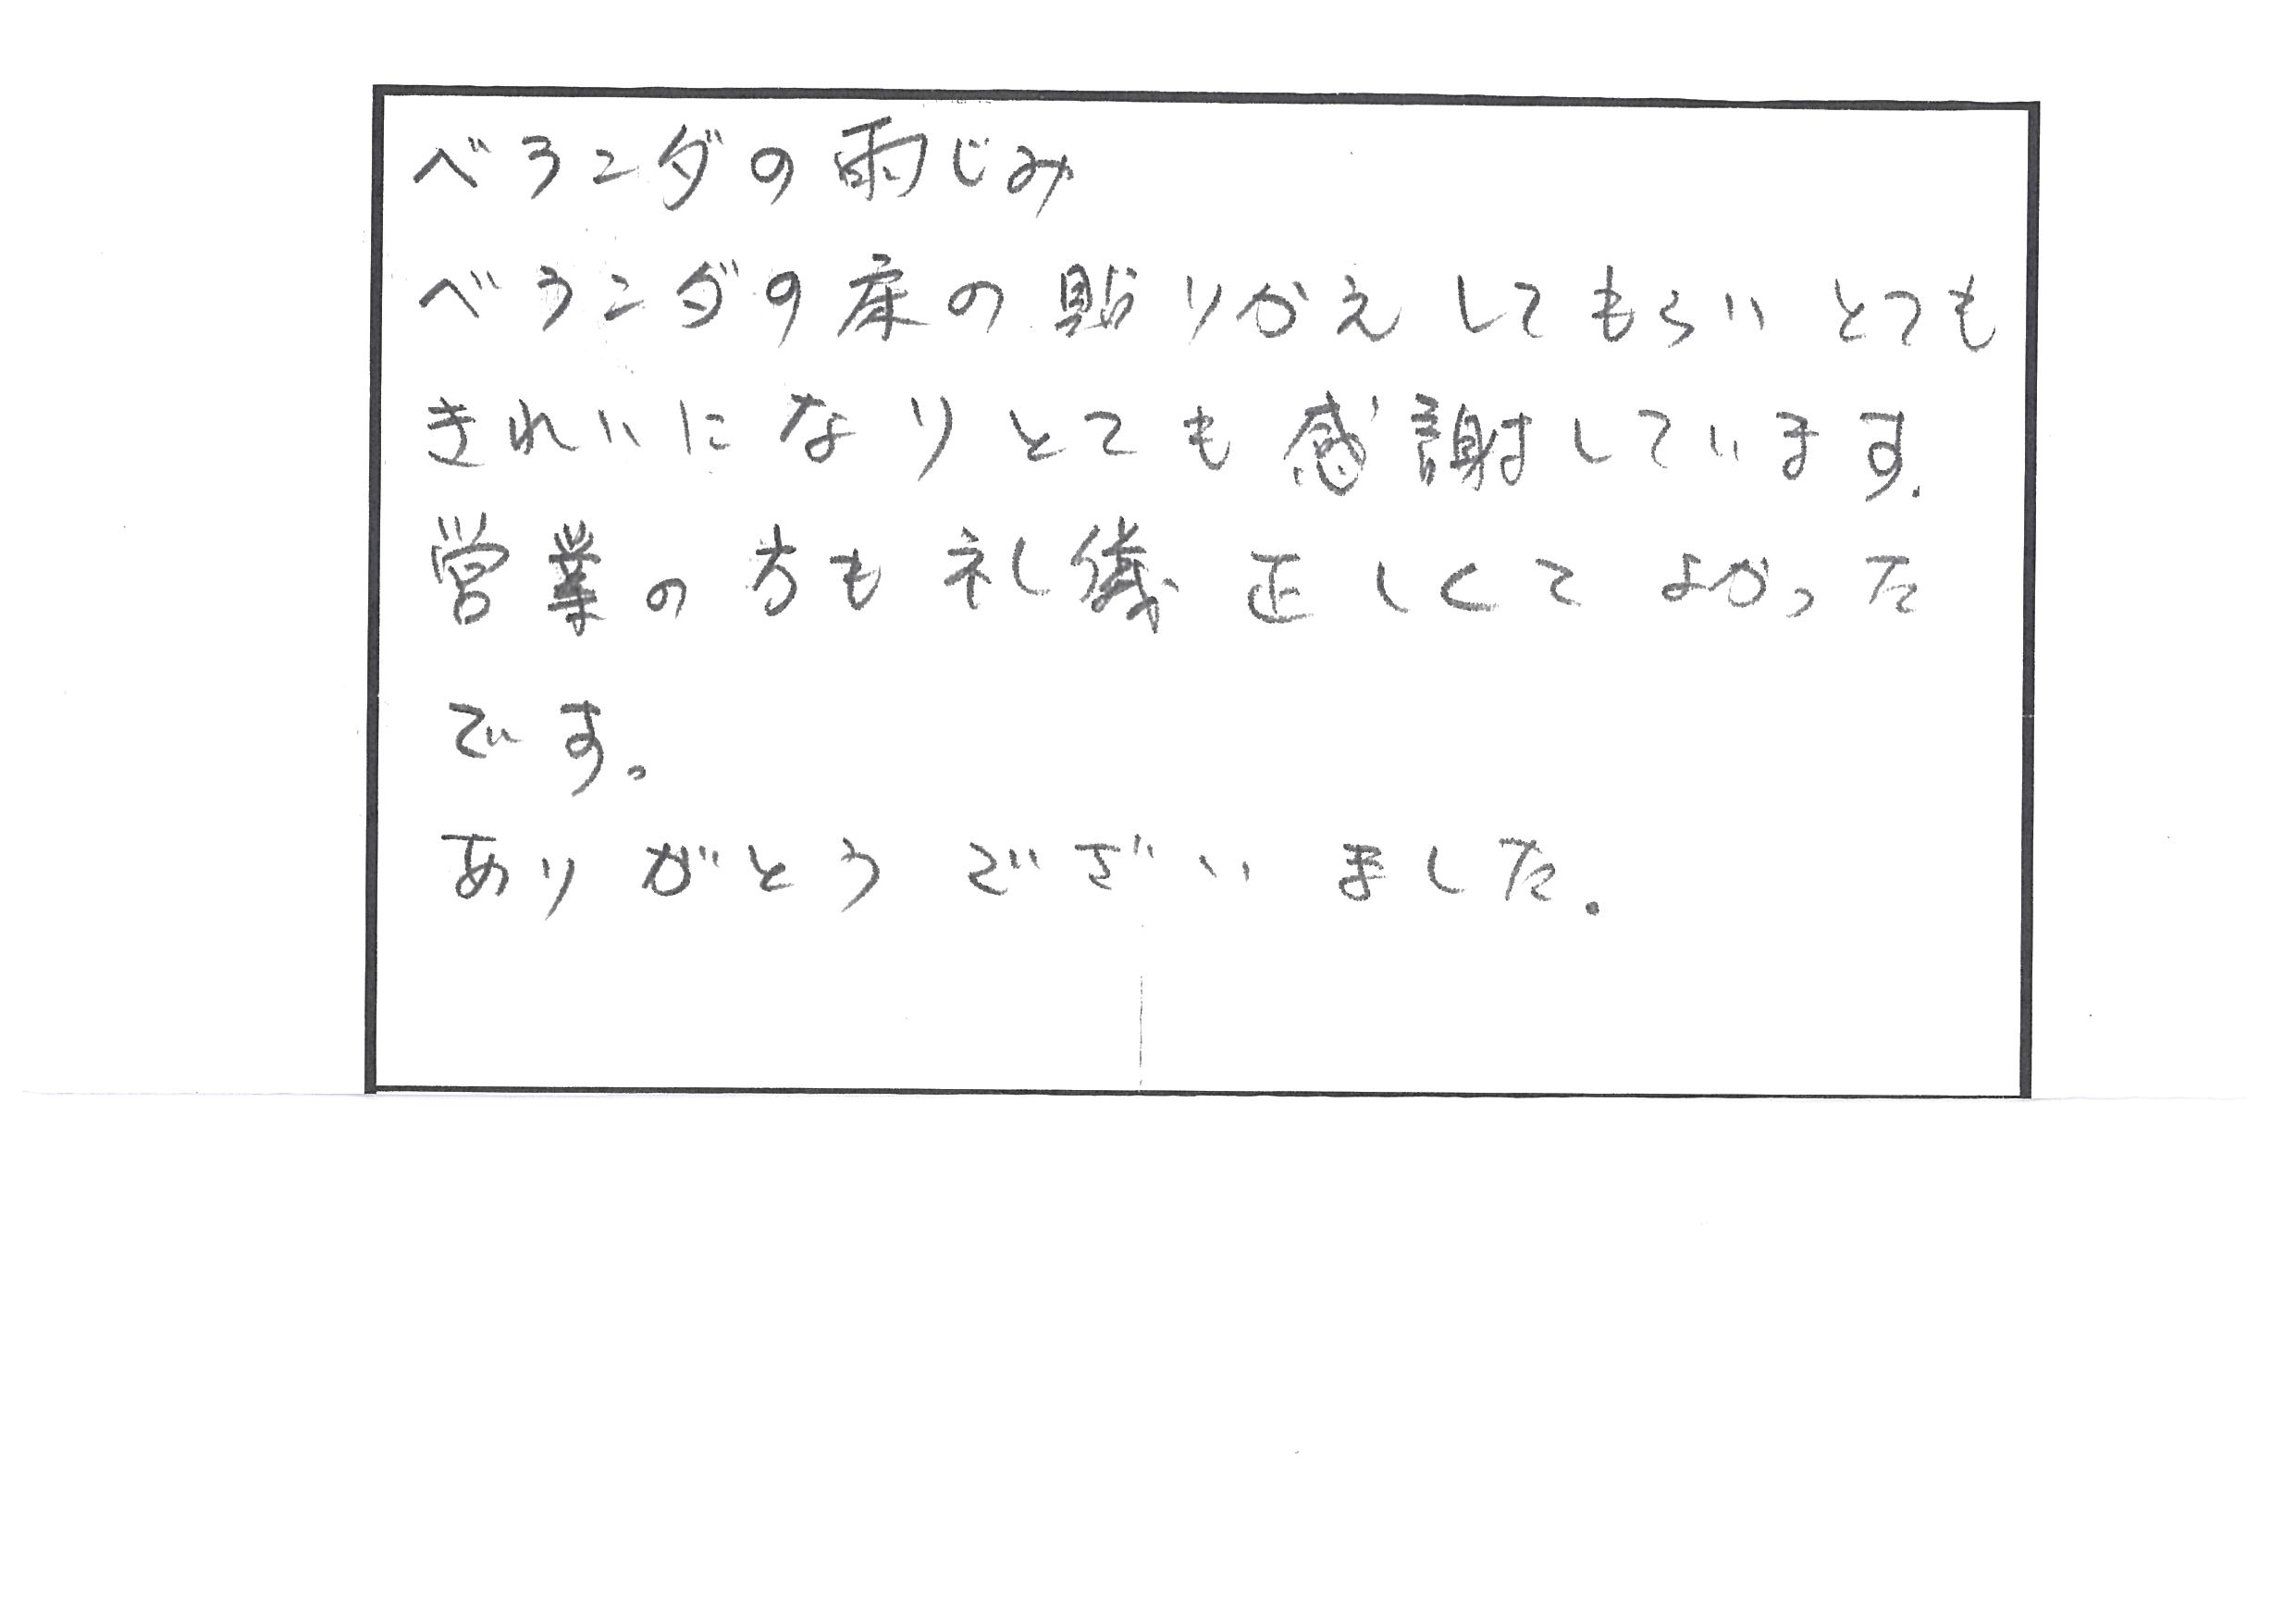 ベランダの雨じみ
ベランダの床の貼りかえしてもらいとても
きれいになりとても感謝しています.
営業の方も礼儀正しくてよかった
です。
ありがとうございました.